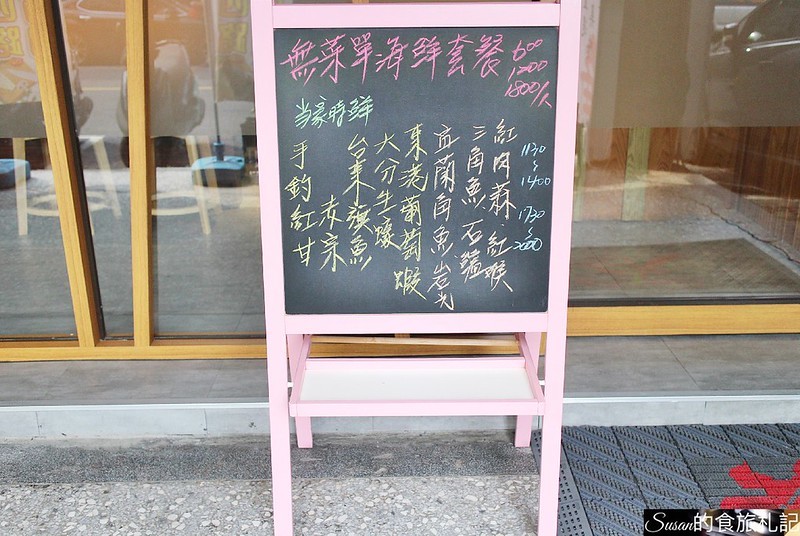 無菜單海鮮套餐 600
1200
1800/人
当家時鮮
紅肉蒜．紅喉
三角魚．石鱸
宜蘭角魚岩光
東港葡萄蝦
大分生蠔
台東旗魚
赤宗
手釣紅甘
1130
~
1400
1730
~
2000
Susan的食旅札記